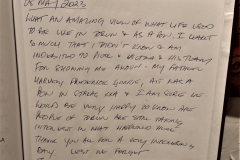 05 MAY 2023
WHAT AN AMAZING VIEW OF WHAT LIFE USED
TO BE LIKE IN & AS A POW. I LEARNT
SO MUCH THAT I DIDN'T KNOW & AM
INDEBTED TO & & HISTORY
FOR SHOWING ME AROUND. MY FATHER
HARVEY WAS A
POW IN & I AM SURE HE
WOULD BE VERY HAPPY TO KNOW
PEOPLE OF ARE STILL TAKING
INTEREST IN WHAT HAPPENED HERE
THANK YOU ALL FOR A VERY INTERESTING
DAY